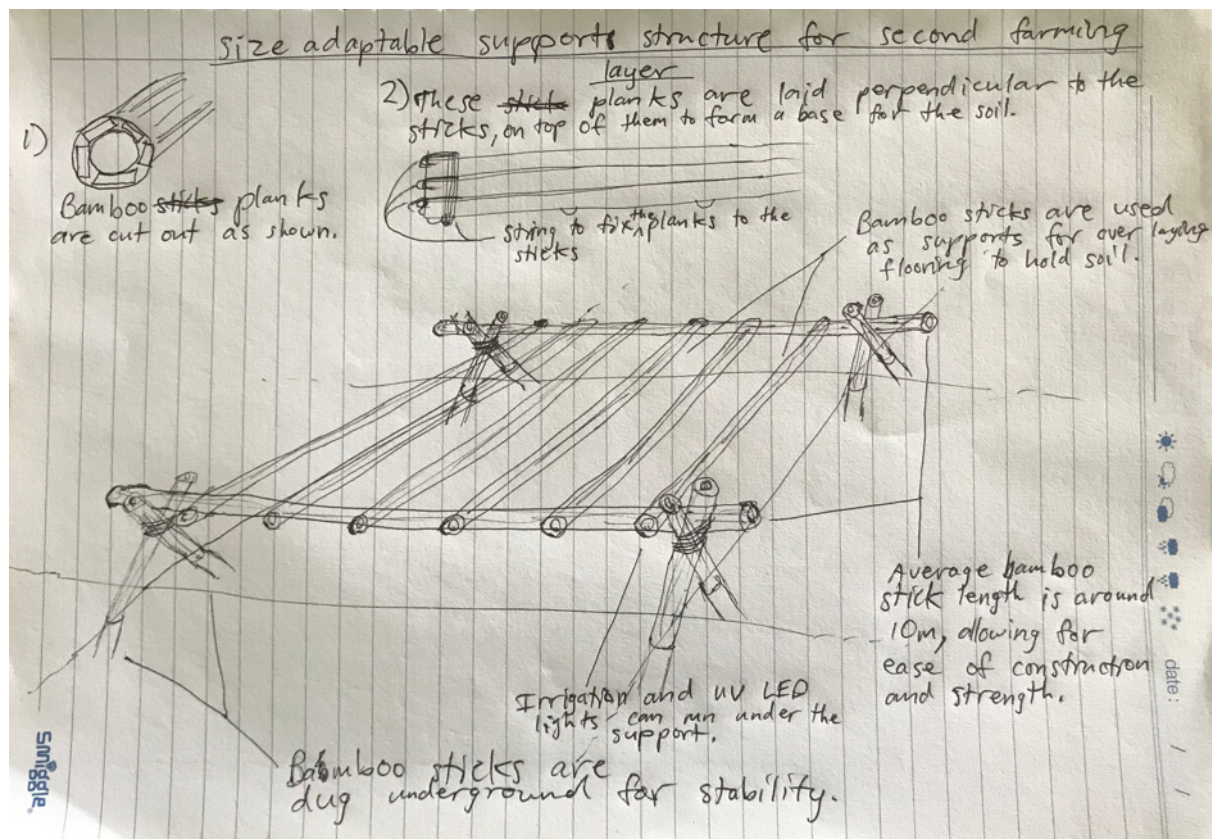 size adaptable supports structure for second farming
layer
1)
Bamboo sticks planks
are cut out as shown.
2) These stick planks are laid perpendicular to the
sticks, on top of them to form a base for the soil.
string to fix the planks to the
sticks
Bamboo sticks are used
as supports for over laying
flooring to hold soil.
Average bamboo
stick length is around
10m, allowing for
ease of construction
and strength.
Irrigation and UV LED
lights can run under the
support.
Bamboo sticks are
dug underground for stability.
date: / /
smiggle